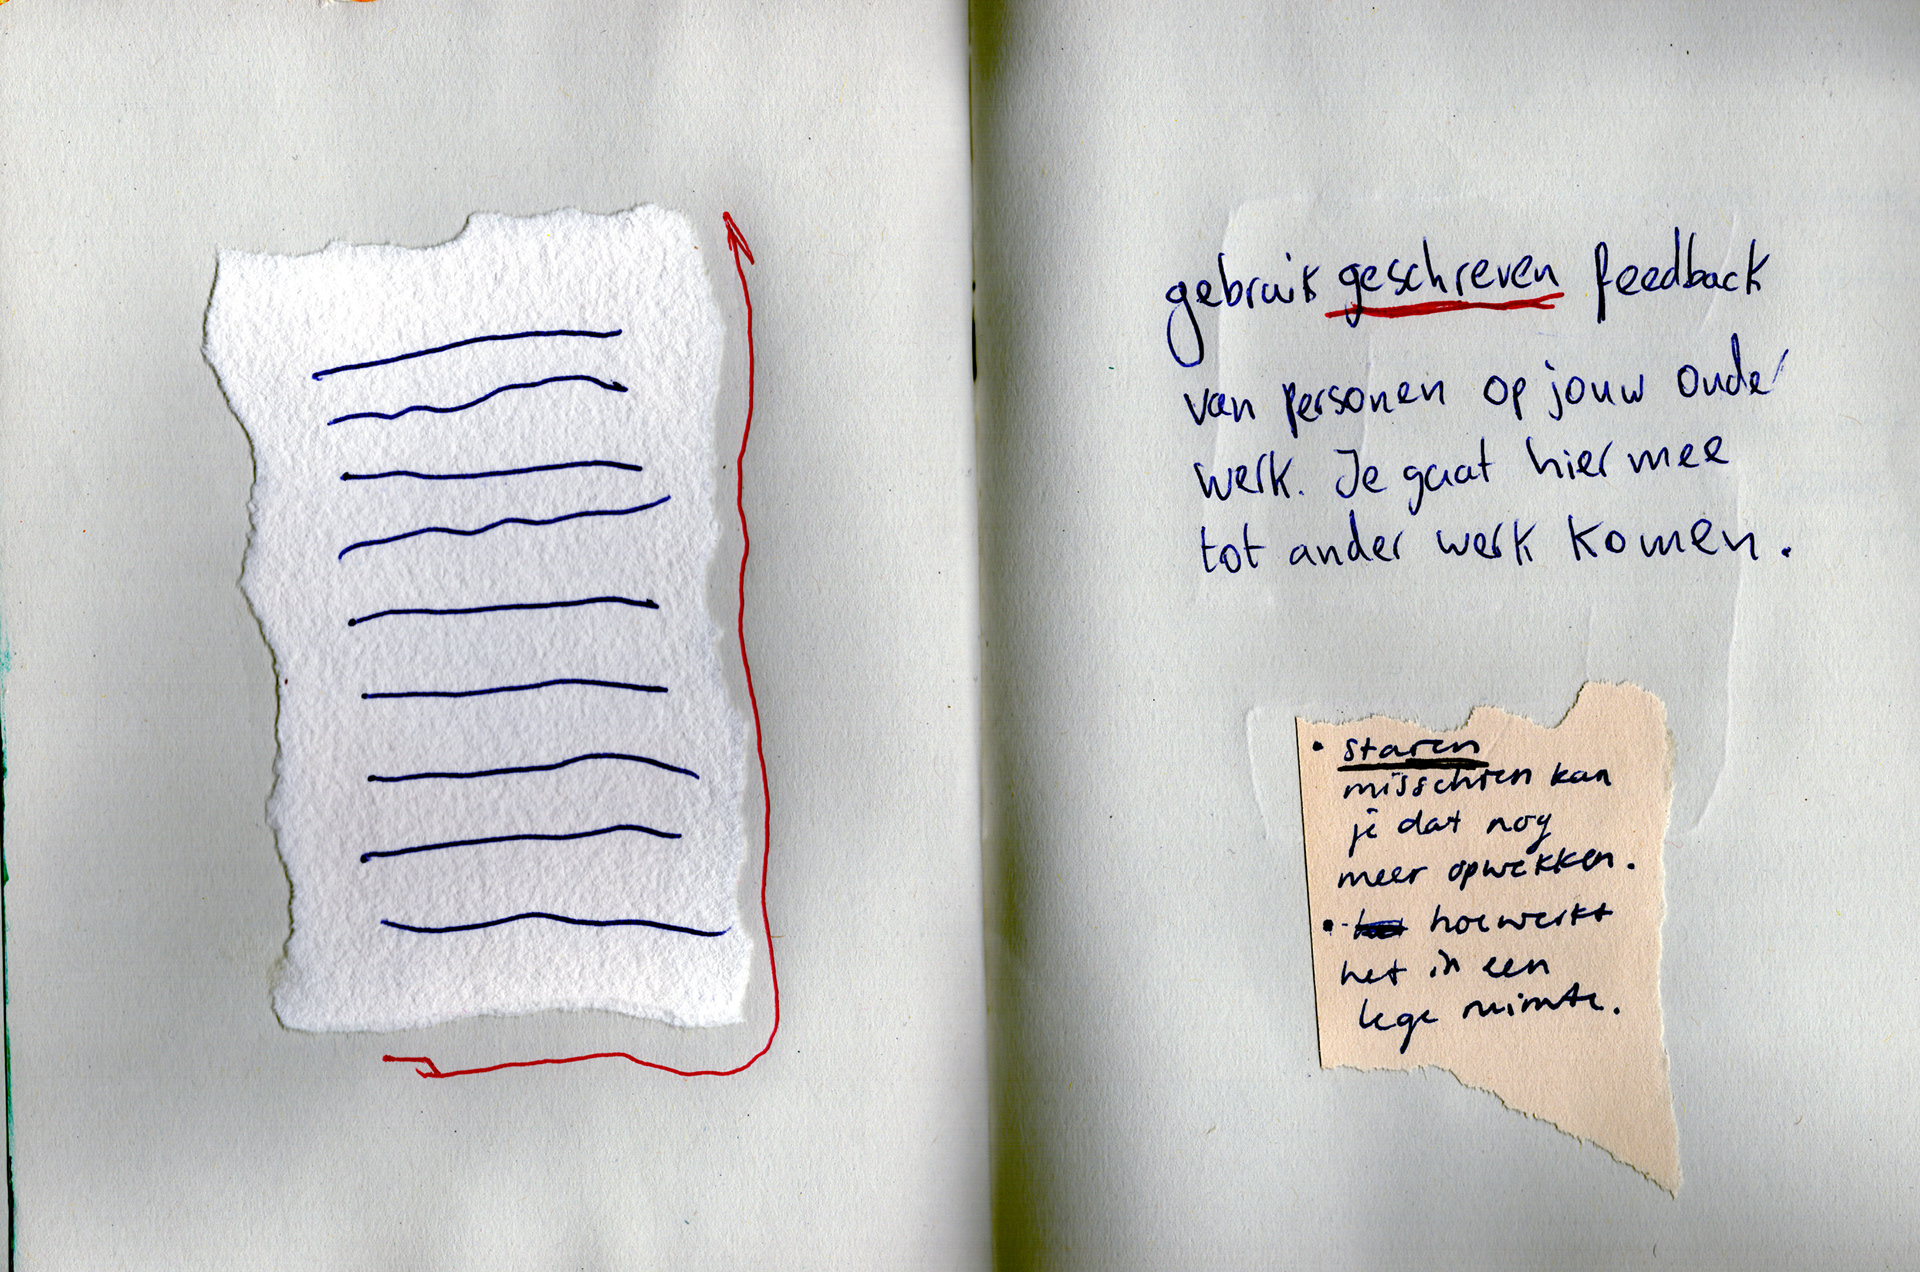 gebruik geschreven feedback
van personen op jouw oude
werk. Je gaat hier mee
tot ander werk komen.
• staren
misschien kan
je dat nog
meer opwekken.
• hoe werkt
het in een
lege ruimte.